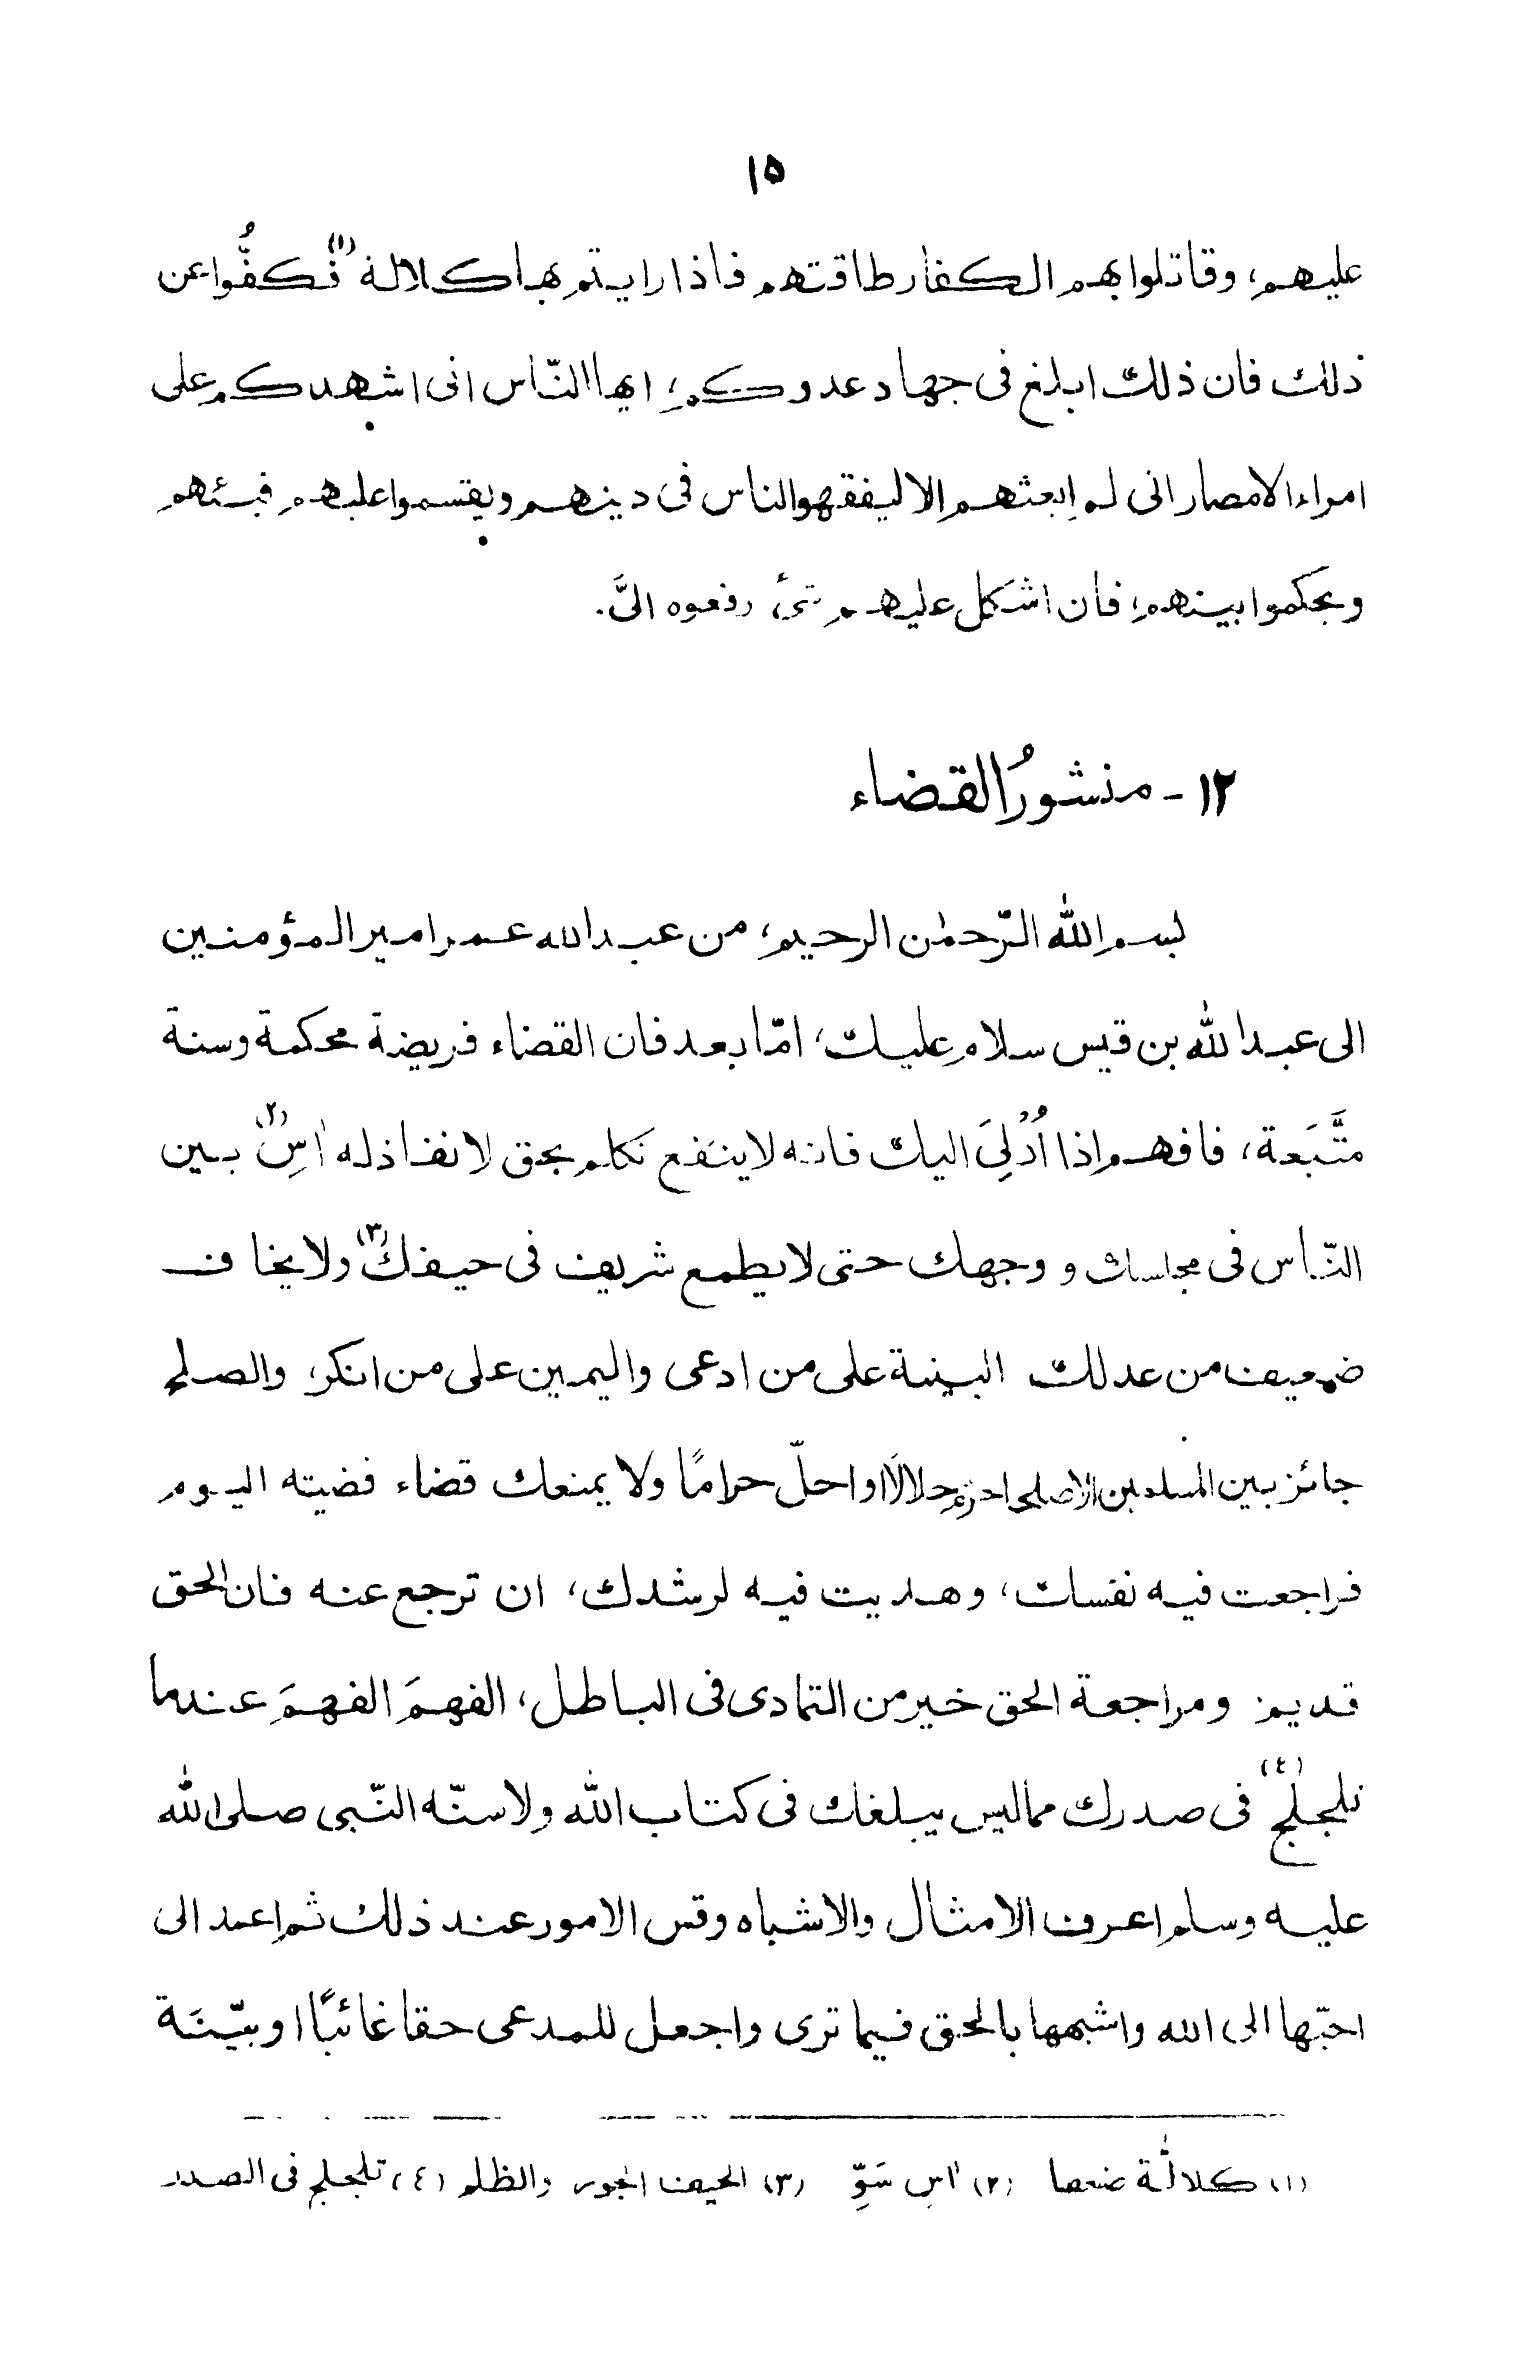 ١٥
عليهم، وقاتلوا بهم الكفار طاقتهم فاذا رايتم بها كلالة (١) فكفُّوا عن
ذلك فان ذلك ابلغ فى جهاد عدوكم، ايها النّاس انى اشهدكم على
امراء الامصار انى لم ابعثهم الا ليفقهوا الناس فى دينهم ويقسموا عليهم فيئهم
ويحكموا بينهم، فان اشكل عليهم شئ رفعوه الىَّ.
١٢ - منشورُ القضاء
بسم الله الرّحمٰن الرحيم، من عبد الله عمر امير المؤمنين
الى عبد الله بن قيس سلام عليك، امّا بعد فان القضاء فريضة محكمة وسنة
متَّبَعة، فافهم اذا اُدْلِىَ اليك فانه لا ينفع تكلم بحق لا نفاذ له اٰسِ (٢) بين
النّاس فى مجلسك و وجهك حتى لا يطمع شريف فى حيفك (٣) ولا يخاف
ضعيف من عدلك البينة على من ادعى واليمين على من انكر، والصلح
جائز بين المسلمين الا صلحا احرم حلالًا او احلّ حرامًا ولا يمنعك قضاء قضيته اليوم
فراجعت فيه نفسك، وهديت فيه لرشدك، ان ترجع عنه فان الحق
قديم ومراجعة الحق خير من التمادى فى الباطل، الفهمَ الفهمَ عندما
تلجلج (٤) فى صدرك مما ليس يبلغك فى كتاب الله ولا سنّه النّبى صلى الله
عليه وسلم اعرف الامثال والاشباه وقس الامور عند ذلك ثم اعمد الى
احبّها الى الله واشبهها بالحق فيما ترى واجعل للمدعى حقا غائبًا او بيّنَة
(١) كلالة ضعفا (٢) اٰس سَوِّ (٣) الحيف الجور والظلم (٤) تلجلج فى الصدر